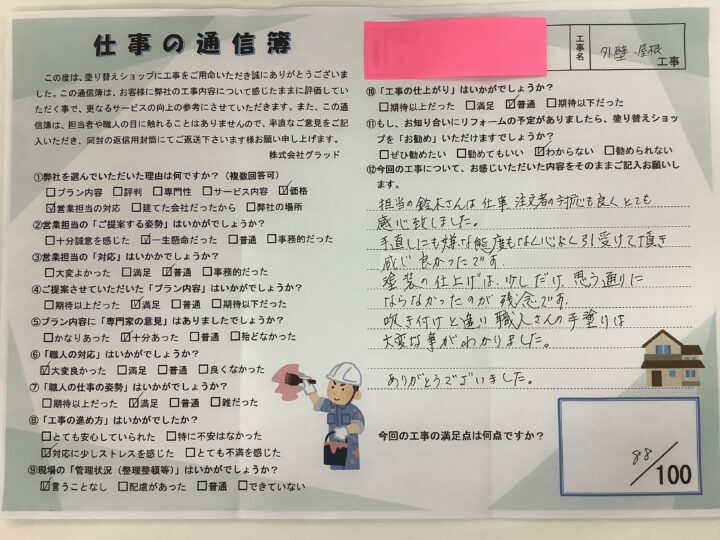 仕事の通信簿
この度は、塗り替えショップに工事をご用命いただき誠にありがとうございま
した。この通信簿は、お客様に弊社の工事内容について感じたままに評価してい
ただく事で、更なるサービスの向上の参考にさせていただきます。また、この通
信簿は、担当者や職人の目に触れることはありませんので、率直なご意見をご記
入いただき、同封の返信用封筒にてご返送下さいます様お願い申し上げます。
株式会社グラッド
①弊社を選んでいただいた理由は何ですか？（複数回答可）
□プラン内容 □評判 □専門性 □サービス内容 ☑価格
☑営業担当の対応 □建てた会社だったから □弊社の場所
②営業担当の「ご提案する姿勢」はいかがでしょうか？
□十分誠意を感じた ☑一生懸命だった □普通 □事務的だった
③営業担当の「対応」はいかがでしょうか？
□大変よかった □満足 ☑普通 □事務的だった
④ご提案させていただいた「プラン内容」はいかがでしょうか？
□期待以上だった ☑満足 □普通 □期待以下だった
⑤プラン内容に「専門家の意見」はありましたでしょうか？
□かなりあった ☑十分あった □普通 □殆どなかった
⑥「職人の対応」はいかがでしょうか？
☑大変良かった □満足 □普通 □良くなかった
⑦「職人の仕事の姿勢」はいかがでしょうか？
□期待以上だった ☑満足 □普通 □雑だった
⑧「工事の進め方」はいかがでしたか？
□とても安心していられた □特に不安はなかった
☑対応に少しストレスを感じた □とても不満を感じた
⑨現場の「管理状況（整理整頓等）」はいかがでしょうか？
☑言うことなし □配慮があった □普通 □できていない
工事名
外壁・屋根
工事
⑩「工事の仕上がり」はいかがでしょうか？
□期待以上だった □満足 ☑普通 □期待以下だった
⑪もし、お知り合いにリフォームの予定がありましたら、塗り替えショッ
プを「お勧め」いただけますでしょうか？
□ぜひ勧めたい □勧めてもいい ☑わからない □勧められない
⑫今回の工事について、お感じいただいた内容をそのままご記入お願いし
ます。
担当の鈴木さんは仕事、注文者の対応も良くとても
感心致しました。
手直しにも嫌な態度もなく心よく引受けて頂き
感じ良かったです
塗装の仕上げは、少しだけ、思う通りに
ならなかったのが残念です
吹き付けと違い職人さんの手塗りは
大変な事がわかりました。
ありがとうございました。
今回の工事の満足点は何点ですか？
88/100